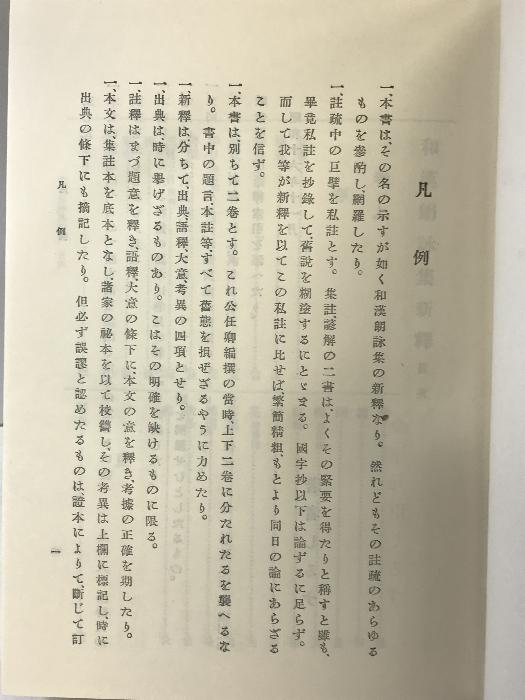 凡例
一、本書は、その名の示すが如く和漢朗詠集の新釋なり。然れどもその註疏のあらゆる
ものを參酌し、網羅したり。
一、註疏中の巨擘を私註とす。集註、諺解の二書は、よくその緊要を得たりと稱すと雖も、
畢竟私註を抄錄して、舊說を糊塗するにとゞまる。國字抄以下は論ずるに足らず。
而して我等が新釋を以てこの私註に比せば、繁簡精粗、もとより同日の論にあらざる
ことを信ず。
一、本書は、別ちて二卷とす。これ公任卿編撰の當時、上下二卷に分たれたるを襲へるな
り。書中の題言、本註等すべて舊態を損ぜざるやうに力めたり。
一、新釋は分ちて、出典、語釋、大意、考異の四項とせり。
一、出典は、時に擧げざるものあり。こはその明確を缺けるものに限る。
一、註釋はまづ題意を釋き、語釋、大意の條下に、本文の意を釋き、考據の正確を期したり。
一、本文は、集註本を底本となし、諸家の祕本を以て校讐し、その考異は上欄に標記し、時に
出典の條下にも摘記したり。但必ず誤謬と認めたるものは、證本によりて、斷じて訂
凡例
一